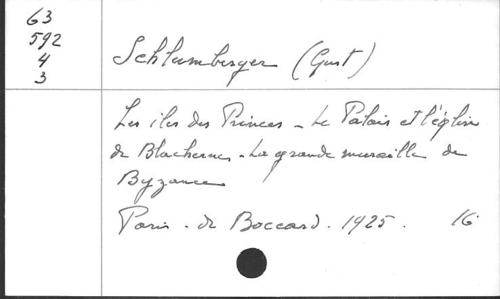 63
592
4
3
Schlumberger (Gust)
Les iles des Princes - Le Palais et l'église
de Blachernes - La grande muraille de
Byzance
Paris - de Boccard. 1925. 16